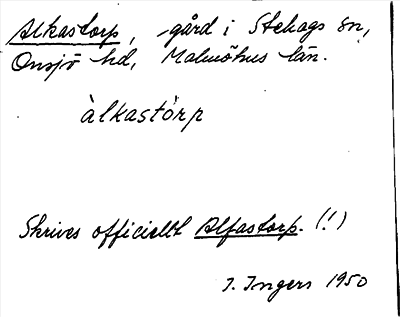 Alkastorp, gård i Stehags sn,
Onsjö hd, Malmöhus län.
àlkastòrp
Skrives officiellt Alfastorp. (!)
I. Ingers 1950